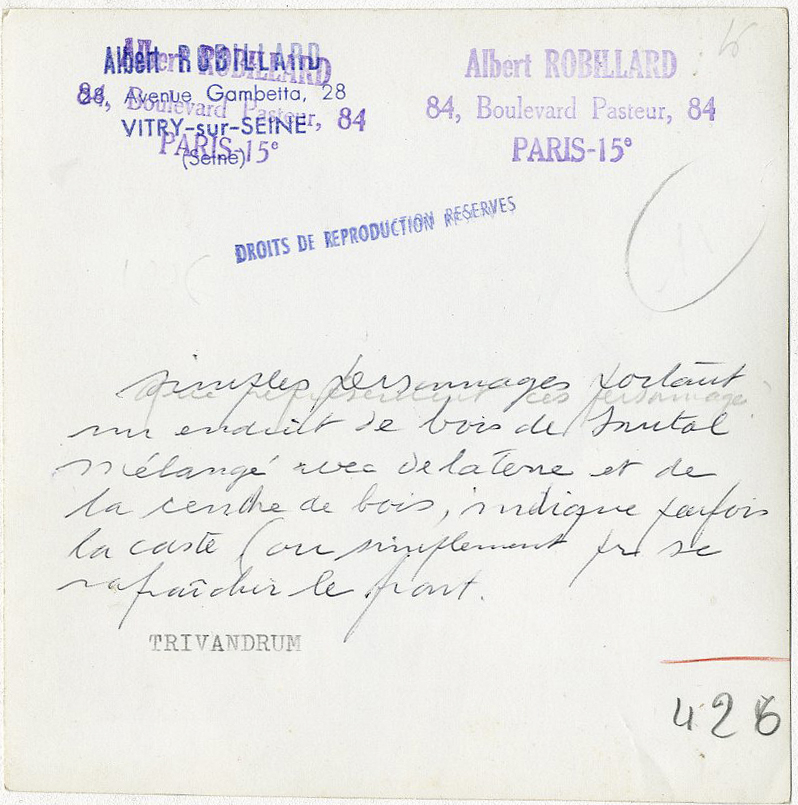 Albert ROBILLARD
28, Avenue Gambetta, 28
VITRY-sur-SEINE
(Seine)
Albert ROBILLARD
84, Boulevard Pasteur, 84
PARIS-15e
Albert ROBILLARD
84, Boulevard Pasteur, 84
PARIS-15e
DROITS DE REPRODUCTION RESERVES
simples personnages portant
que représentent ces personnages?
un enduit de bois de Santal
mélangé avec de la terre et de
la cendre de bois, indique parfois
la caste (ou simplement pr se
rafraîchir le front.
TRIVANDRUM
426